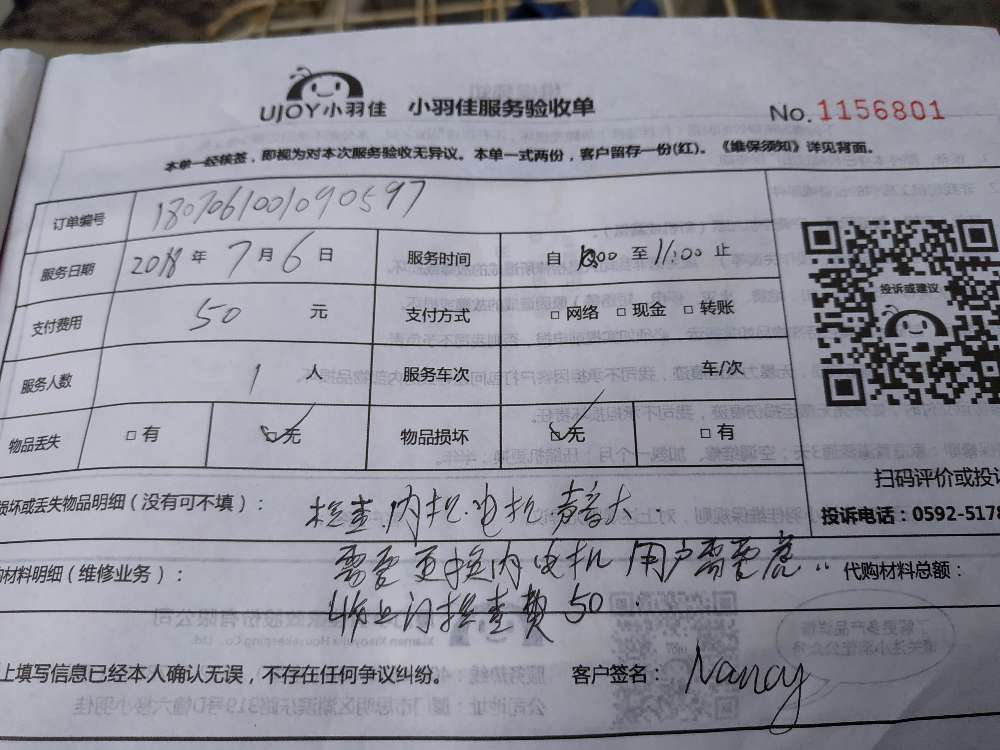 UJOY小羽佳 小羽佳服务验收单 No.1156801
本单一经核签，即视为对本次服务验收无异议。本单一式两份，客户留存一份(红)。《维保须知》详见背面。
订单编号 180706100109059​7
服务日期 2018年7月6日 服务时间 自 10:00 至 11:00 止
投诉或建议
支付费用 50 元 支付方式 □网络 □现金 □转账
服务人数 1 人 服务车次 车/次
物品丢失 □有 □无 物品损坏 □无 □有
扫码评价或投
损坏或丢失物品明细（没有可不填）： 检查内机电机声音大.
投诉电话：0592-5178
材料明细（维修业务）： 需要更换内电机 用户需要 代购材料总额：
上门检查费50.
上填写信息已经本人确认无误，不存在任何争议纠纷。 客户签名： Nancy